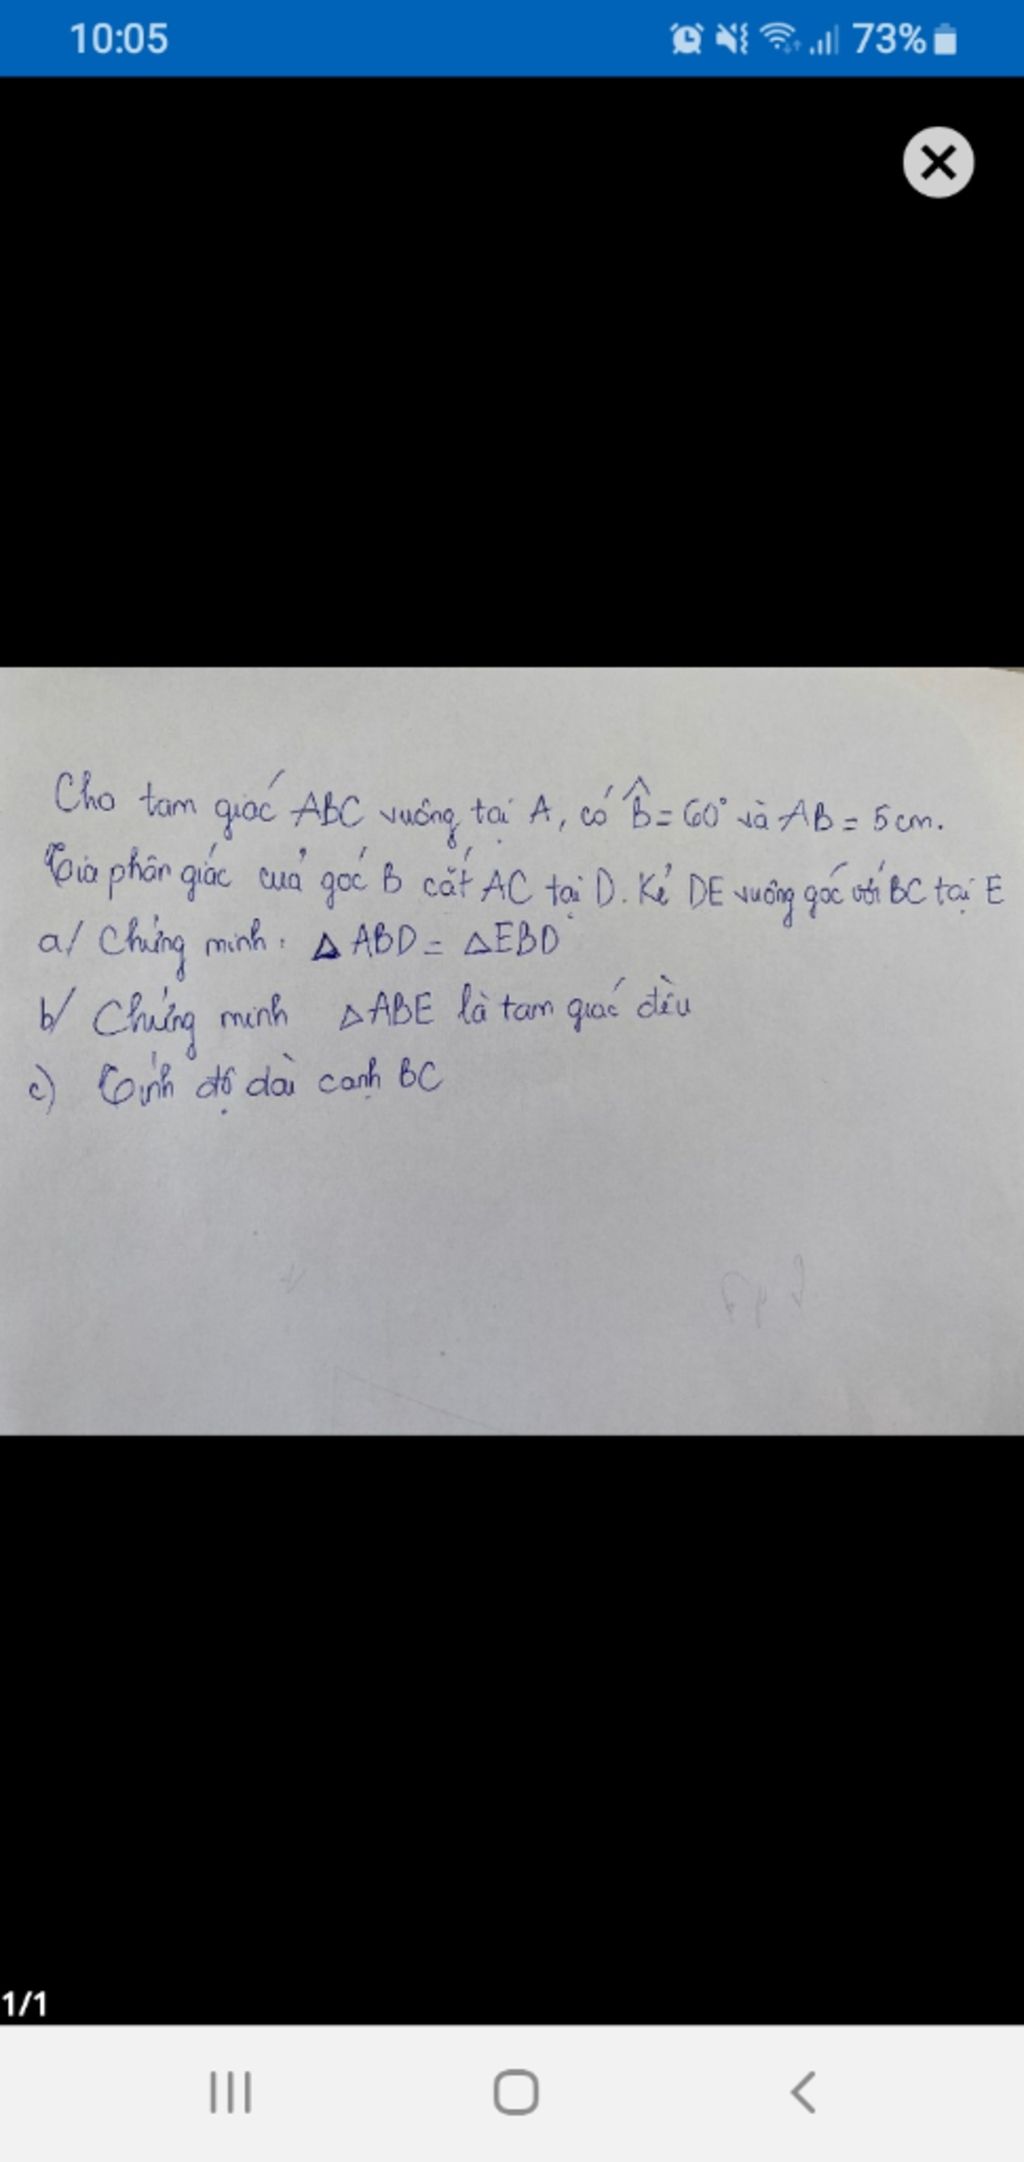 10:05
73%
Cho tam giác ABC vuông tại A, có B̂ = 60° và AB = 5cm.
Tia phân giác của góc B cắt AC tại D. Kẻ DE vuông góc với BC tại E
a/ Chứng minh: △ ABD = △EBD
b/ Chứng minh △ABE là tam giác đều
c) Tính độ dài cạnh BC
1/1